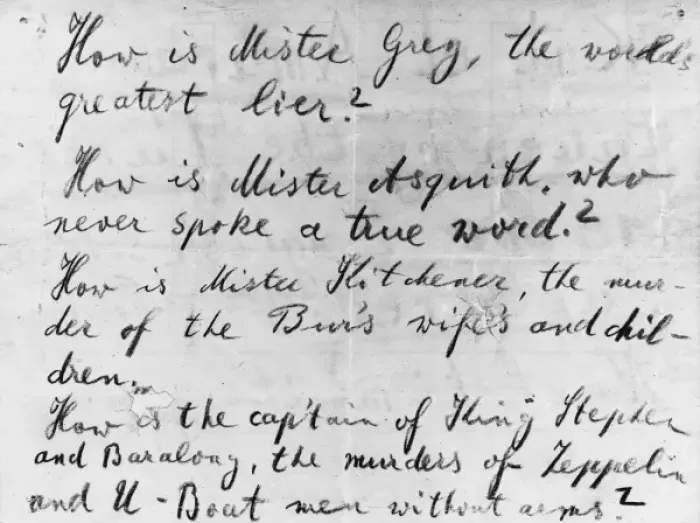 How is Mister Grey, the worlds
greatest lier?
How is Mister Asquith, who
never spoke a true word?
How is Mister Kitchener, the mur-
der of the Bur's wife's and chil-
dren.
How is the captain of King Stephen
and Baralong, the murders of Zeppelin
and U-Boat men without arms?